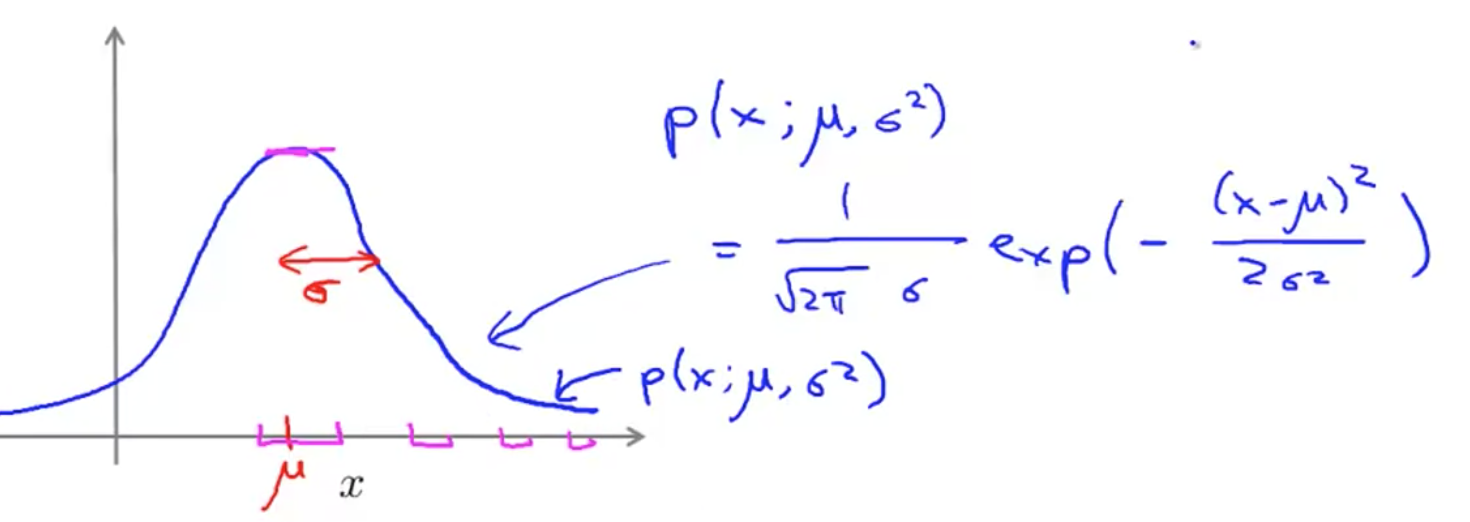 p(x; μ, σ²)
= 1/(√2π σ) exp(- (x-μ)²/2σ²)
σ
p(x; μ, σ²)
μ x